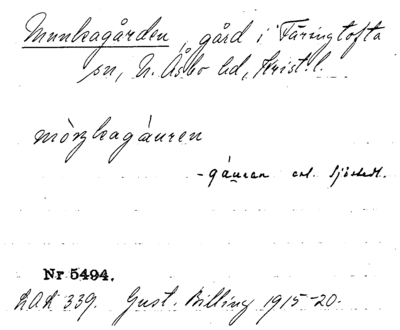 Munkagården, gård i Färingtofta
sn, N. Åsbo hd, Krist. l.
mòŋkagá̀uren
-gáuran enl. Sjöstedt.
Nr 5494.
LAL 339. Gust. Billing 1915-20.